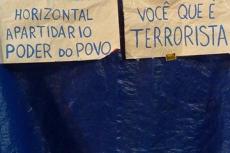 HORIZONTAL
APARTIDARIO
PODER DO POVO
VOCÊ QUE É
TERRORISTA